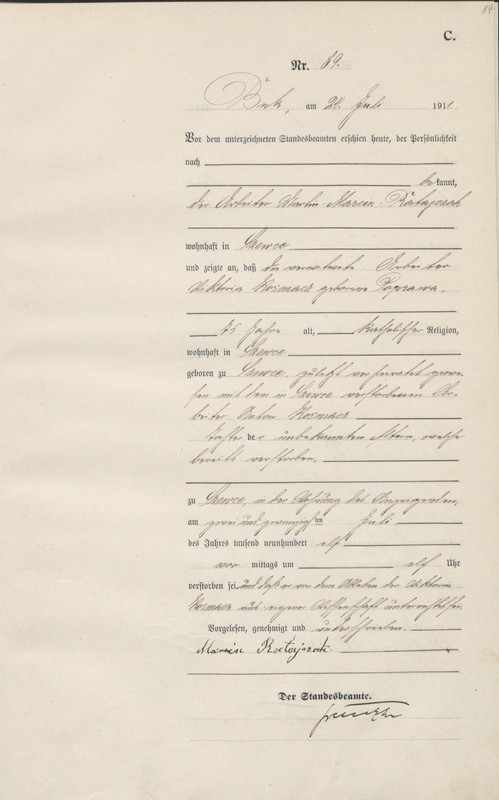 89
C.
Nr. 89.
Buk, am 24. Juli 1911
Vor dem unterzeichneten Standesbeamten erschien heute, der Persönlichkeit
nach
bekannt,
der Arbeiter Martin - Marcin - Ratajczak
wohnhaft in Szewce
und zeigte an, daß die verwitwete Arbeiter
Viktoria Kosmacz geborene Poprawa,
75 Jahre alt, katholischer Religion,
wohnhaft in Szewce
geboren zu Szewce, zuletzt verheiratet gewe-
sen mit dem in Szewce verstorbenen Ar-
beiter Anton Kosmacz
Tochter der unbekannten Eltern, welche
bereits verstorben,
zu Szewce, in der Wohnung des Anzeigenden,
am zwei und zwanzigsten Juli
des Jahres tausend neunhundert elf
vor mittags um elf Uhr
verstorben sei, und daß er von dem Ableben der Viktoria
Kosmacz aus eigener Wissenschaft unterrichtet sei.
Vorgelesen, genehmigt und unterschrieben.
Marcin Ratajczak
Der Standesbeamte.